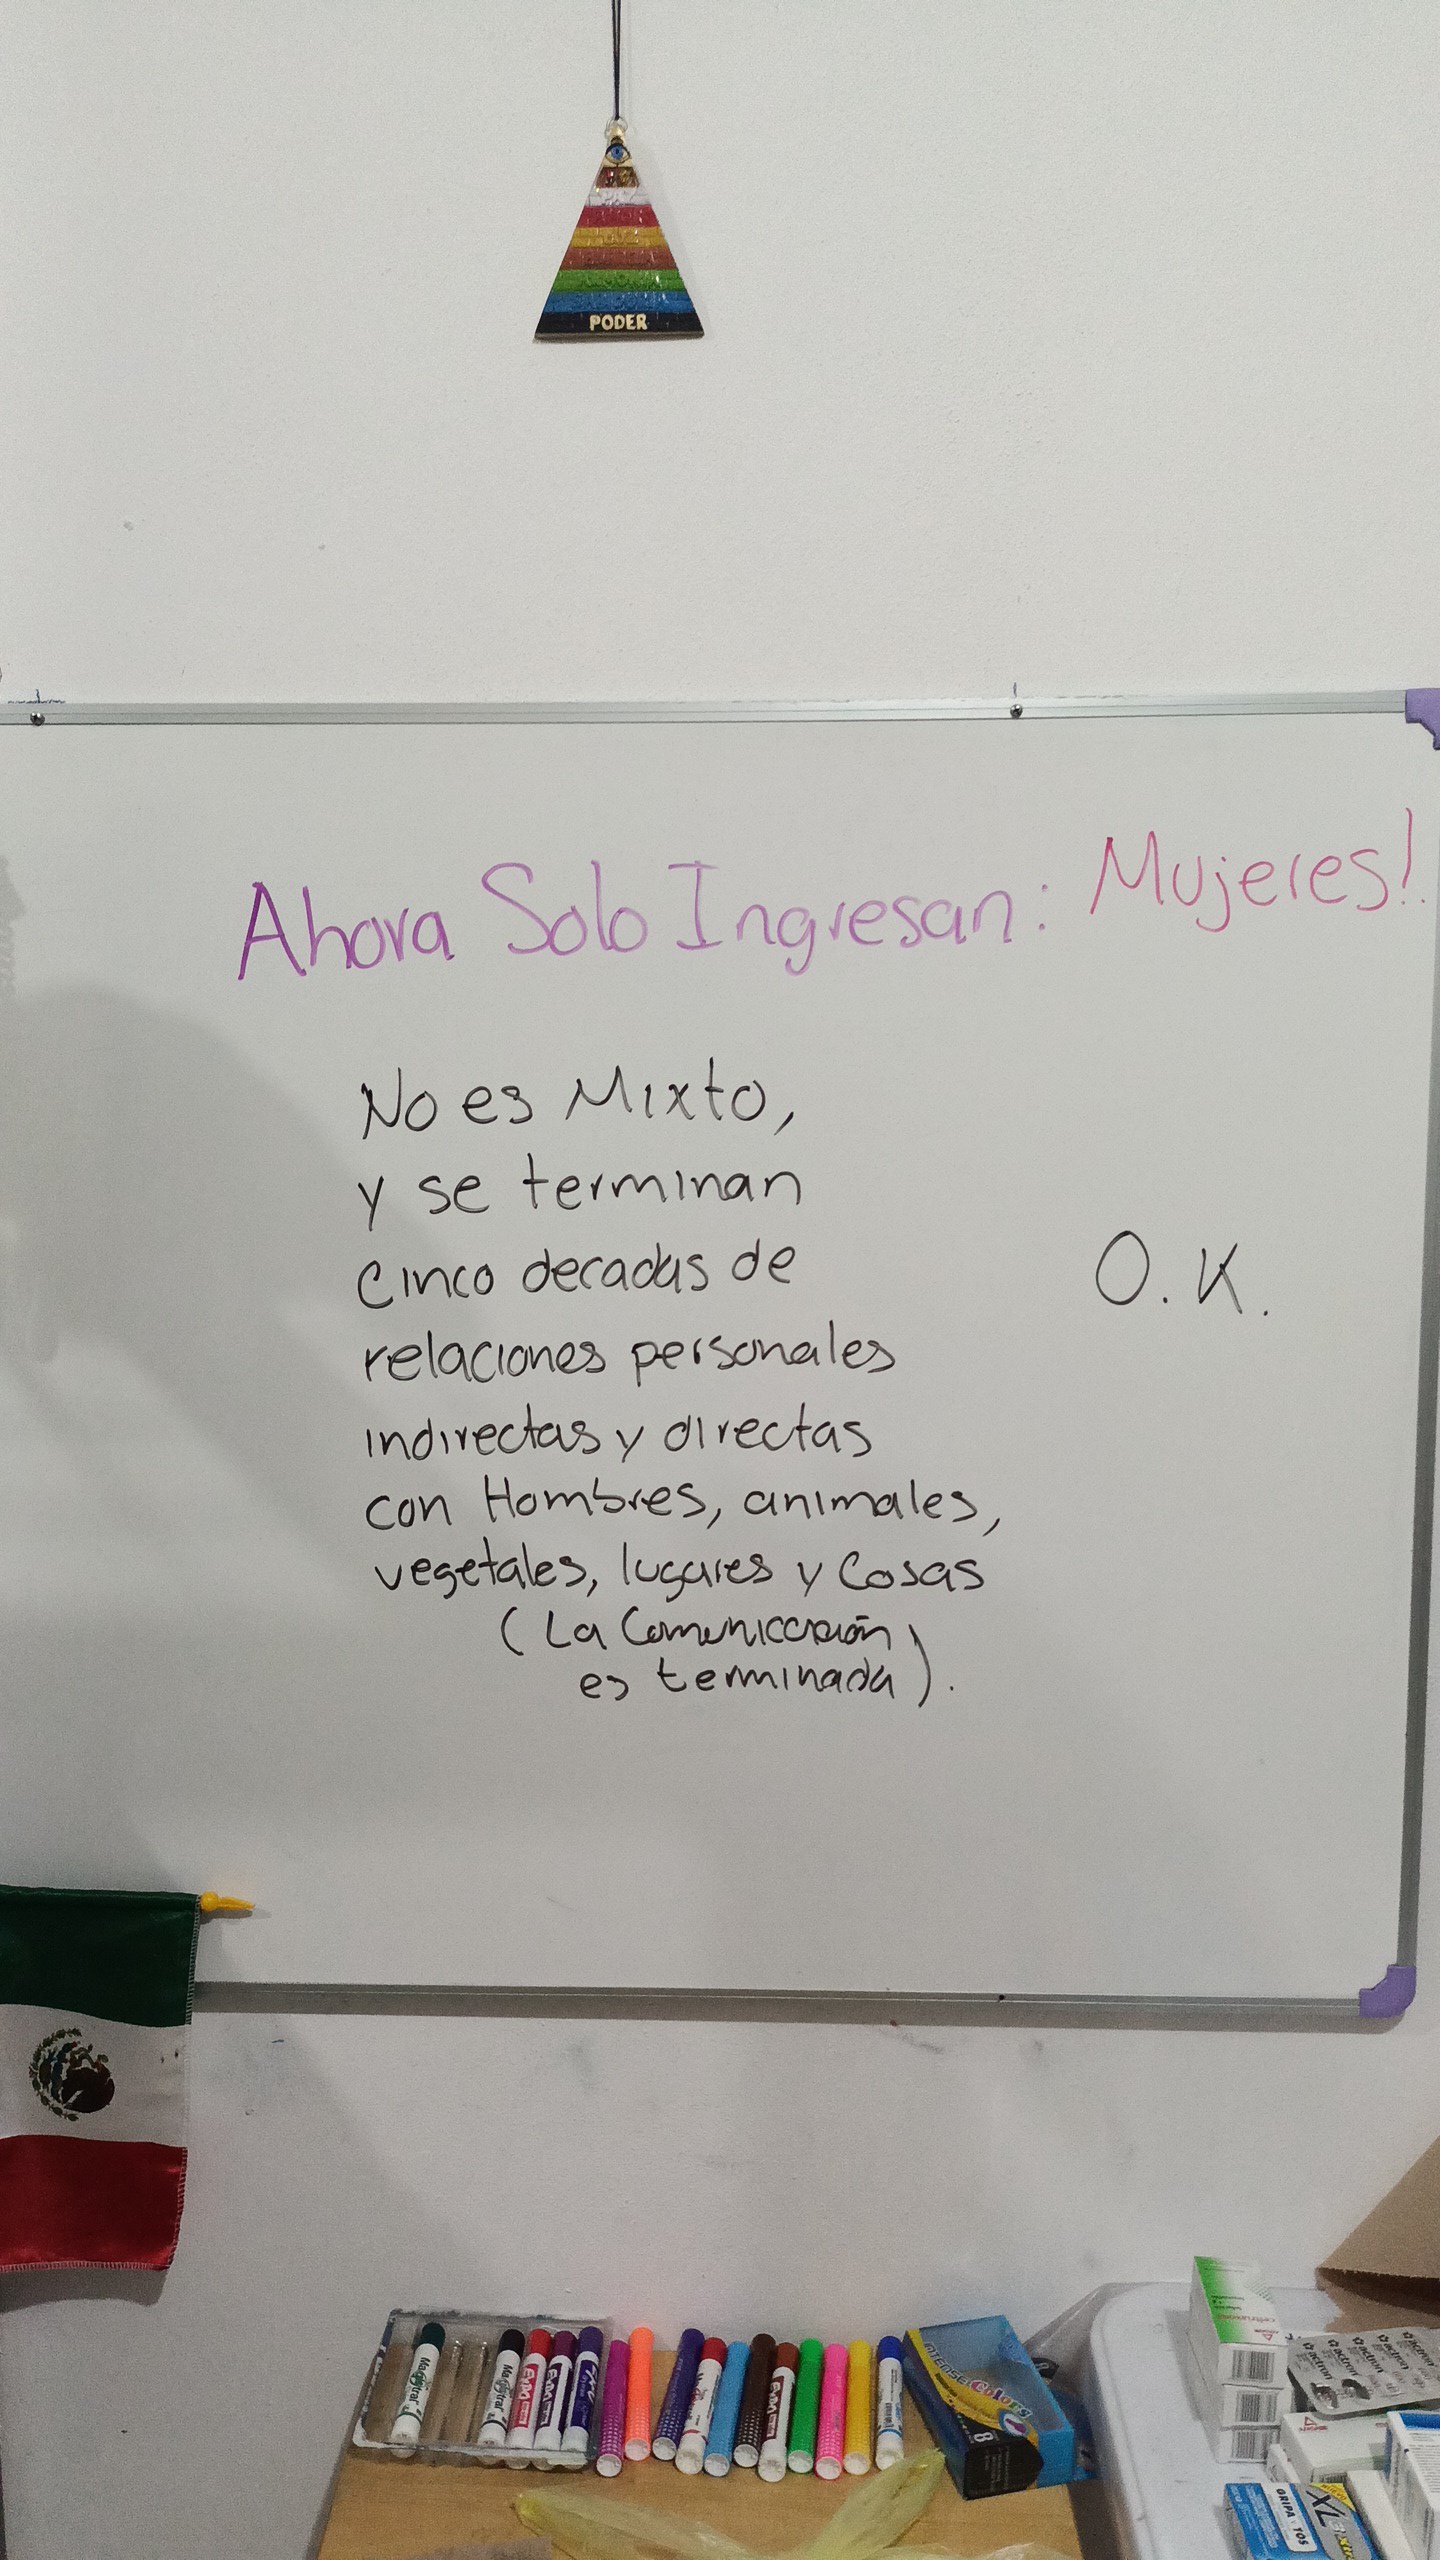 PODER
Ahora Solo Ingresan: Mujeres!.
No es Mixto,
y se terminan
Cinco decadas de
O.K.
relaciones personales
indirectas y directas
con Hombres, animales,
vegetales, lugares y Cosas
(La Comunicación
es terminada).
Magistral
Magistral
EXPO
EXPO
EXPO
INTENSE Colors
8
actron actron actron actron
GRIPA Y TOS
XL